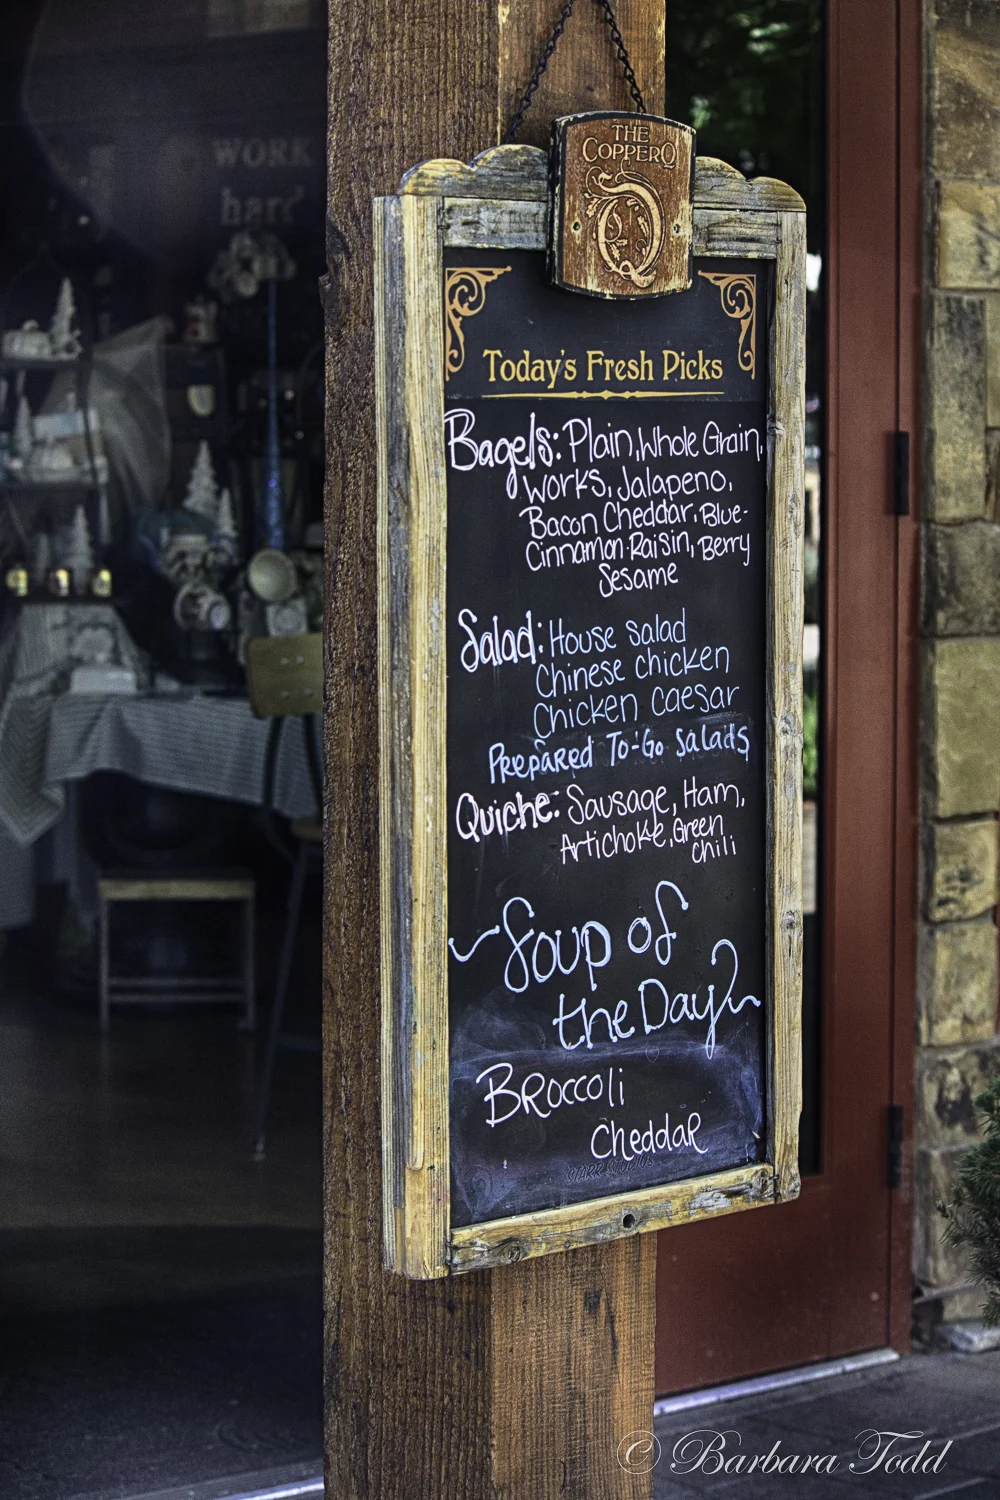 WORK
hard
THE
COPPERQ
Q
Today's Fresh Picks
Bagels: Plain, Whole Grain,
Works, Jalapeno,
Bacon Cheddar, Blue-
Cinnamon-Raisin, Berry
Sesame
Salad: House Salad
Chinese Chicken
Chicken Caesar
Prepared To-Go Salads
Quiche: Sausage, Ham,
Artichoke, Green
Chili
~Soup of
the Day~
Broccoli
Cheddar
STARR STUDIOS
© Barbara Todd